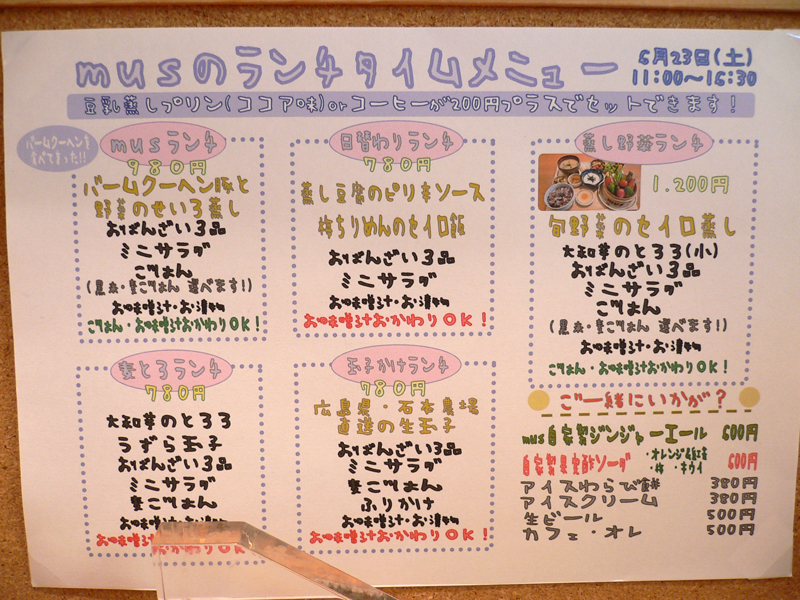 musのランチタイムメニュー
6月23日(土)
11:00〜16:30
豆乳蒸しプリン(ココア味)orコーヒーが200円プラスでセットできます！
バームクーヘンを
musランチ
980円
バームクーヘン豚と
野菜のせいろ蒸し
おばんざい3品
ミニサラダ
ごはん
(黒米・麦ごはん 選べます！)
お味噌汁・お漬物
ごはん・お味噌汁おかわりOK！
日替わりランチ
780円
蒸し豆腐のピリ辛ソース
梅ちりめんのセイロ飯
おばんざい3品
ミニサラダ
お味噌汁・お漬物
お味噌汁おかわりOK！
蒸し野菜ランチ
1.200円
旬野菜のセイロ蒸し
大和芋のとろろ(小)
おばんざい3品
ミニサラダ
ごはん
(黒米・麦ごはん 選べます！)
お味噌汁・お漬物
ごはん・お味噌汁おかわりOK！
麦とろランチ
780円
大和芋のとろろ
うずら玉子
おばんざい3品
ミニサラダ
麦ごはん
お味噌汁・お漬物
お味噌汁おかわりOK
玉子かけランチ
780円
広島県・石本農場
直送の生玉子
おばんざい3品
ミニサラダ
麦ごはん
ふりかけ
お味噌汁・お漬物
お味噌汁おかわりOK！
ご一緒にいかが？
mus自家製ジンジャーエール 600円
自家製果実酢ソーダ ・オレンジ&紅茶 ・梅 ・キウイ 600円
アイスわらび餅 380円
アイスクリーム 380円
生ビール 500円
カフェ・オレ 500円